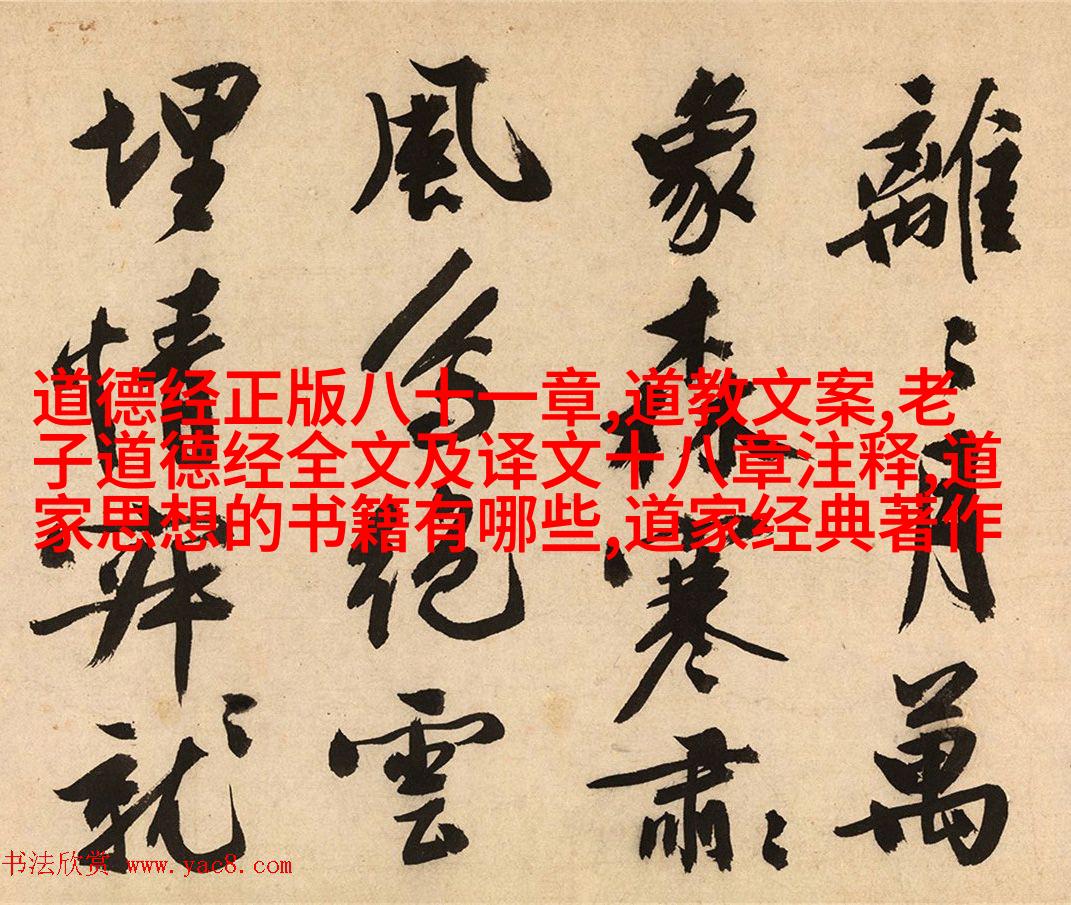 離〻月萬
象森寒肅〻
風鳥絕雲
埋情就〻
道德经正版八十一章,道教文案,老
子道德经全文及译文十八章注释,道
家思想的书籍有哪些,道家经典著作
书法欣赏 www.yac8.com